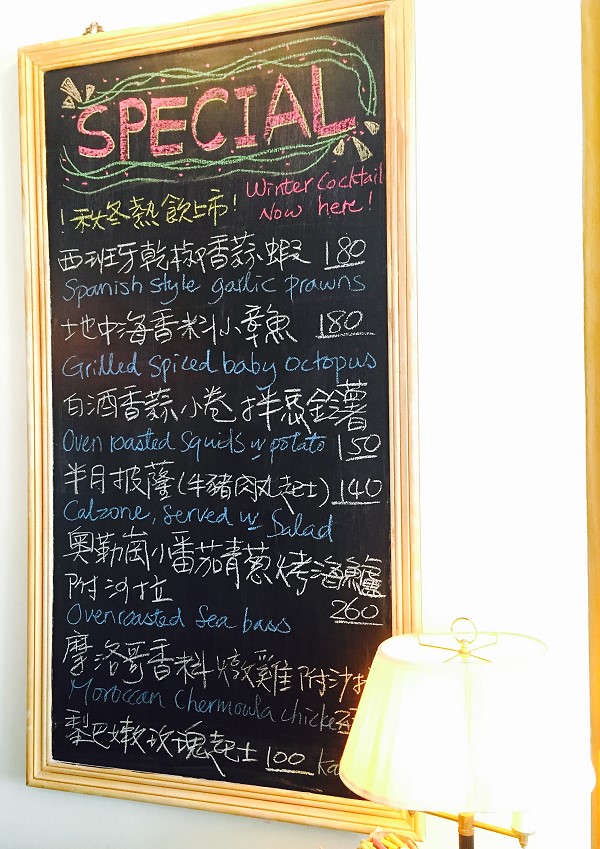 SPECIAL
!秋冬熱飲上市! Winter Cocktail
Now here!
西班牙乾椒香蒜蝦 180
Spanish style garlic prawns
地中海香料小章魚 180
Grilled Spiced baby octopus
白酒香蒜小卷拌馬鈴薯
Oven roasted Squids w potato 150
半月披薩(牛豬肉丸起士) 140
Calzone, Served w Salad
奧勒崗小番茄青蔥烤海鱸
附沙拉 260
Ovenroasted Sea bass
摩洛哥香料燉雞附沙
Moroccan Chermoula chicke
嫩玫瑰起士 100